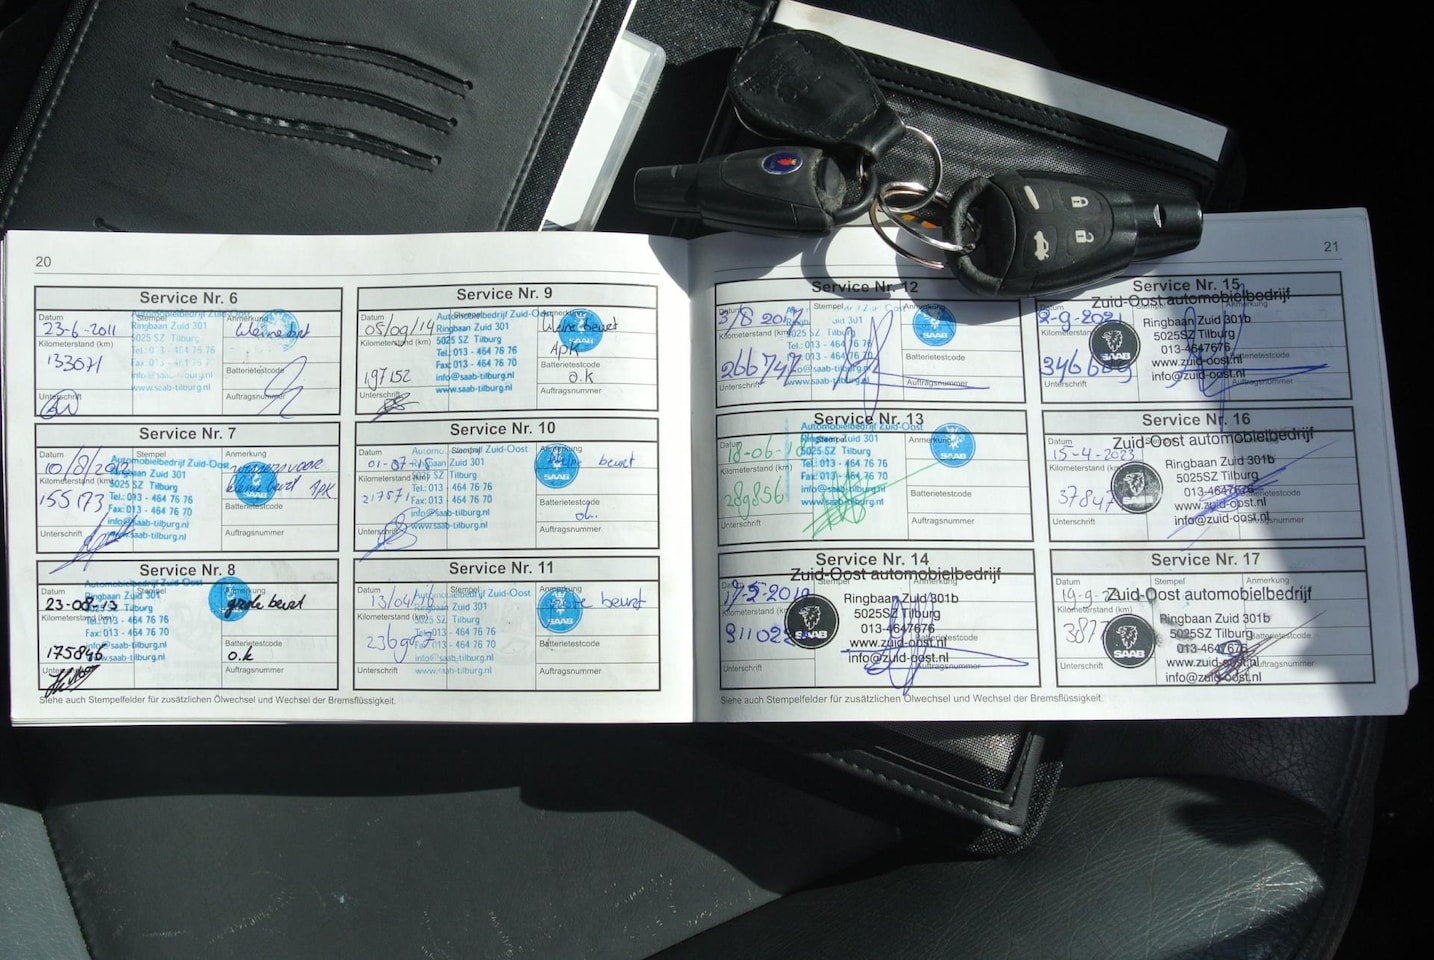 20
Service Nr. 6
Datum
Stempel
23-6-2011
Ringbaan Zuid 301
kleine brt
Kilometerstand (km)
5025 SZ Tilburg
133071
Tel.: 013 - 464 76 76
Fax: 013 - 464 76 70
info@saab-tilburg.nl
Batterietestcode
www.saab-tilburg.nl
Unterschrift
Auftragsnummer
Service Nr. 7
Datum
Stempel
Anmerkung
10/8/2012
Automobielbedrijf Zuid-Oost
Ringbaan Zuid 301
kleine beurt APK
5025 SZ Tilburg
155173
Tel.: 013 - 464 76 76
Fax: 013 - 464 76 70
SAAB
info@saab-tilburg.nl
Batterietestcode
www.saab-tilburg.nl
Unterschrift
Auftragsnummer
Service Nr. 8
Automobielbedrijf Zuid-Oost
Stempel
Anmerkung
23-08-13
Ringbaan Zuid 301
grote beurt
Kilometerstand (km)
5025 SZ Tilburg
Tel.: 013 - 464 76 76
Fax: 013 - 464 76 70
Batterietestcode
175846
info@saab-tilburg.nl
o.k
www.saab-tilburg.nl
Unterschrift
Auftragsnummer
Service Nr. 9
Datum
Stempel
Automobielbedrijf Zuid-Oost
Anmerkung
05/09/14
Ringbaan Zuid 301
kleine beurt
Kilometerstand (km)
5025 SZ Tilburg
APK
Tel.: 013 - 464 76 76
Fax: 013 - 464 76 70
Batterietestcode
197152
info@saab-tilburg.nl
o.k
www.saab-tilburg.nl
Unterschrift
Auftragsnummer
Service Nr. 10
Datum
Stempel
Automobielbedrijf Zuid-Oost
Anmerkung
01-07-15
Ringbaan Zuid 301
beurt
Kilometerstand (km)
5025 SZ Tilburg
SAAB
Tel.: 013 - 464 76 76
217571
Fax: 013 - 464 76 70
Batterietestcode
info@saab-tilburg.nl
ok.
Unterschrift
www.saab-tilburg.nl
Auftragsnummer
Service Nr. 11
Datum
Stempel
Automobielbedrijf Zuid-Oost
Anmerkung
13/04/16
Ringbaan Zuid 301
beurt
Kilometerstand (km)
5025 SZ Tilburg
SAAB
Tel.: 013 - 464 76 76
Fax: 013 - 464 76 70
Batterietestcode
info@saab-tilburg.nl
www.saab-tilburg.nl
Unterschrift
Auftragsnummer
Siehe auch Stempelfelder für zusätzlichen Ölwechsel und Wechsel der Bremsflüssigkeit.
21
Service Nr. 12
Datum
Stempel
Anmerkung
3/8 2017
Ringbaan Zuid 301
Kilometerstand (km)
5025 SZ Tilburg
Tel.: 013 - 464 76 76
Fax: 013 - 464 76 70
Batterietestcode
266747
info@saab-tilburg.nl
www.saab-tilburg.nl
Unterschrift
Auftragsnummer
Service Nr. 13
Automobielbedrijf Zuid-Oost
Datum
Stempel
Anmerkung
18-06-18
Ringbaan Zuid 301
Kilometerstand (km)
5025 SZ Tilburg
Tel.: 013 - 464 76 76
SAAB
Fax: 013 - 464 76 70
289856
info@saab-tilburg.nl
Batterietestcode
www.saab-tilburg.nl
Unterschrift
Auftragsnummer
Service Nr. 14
Zuid-Oost automobielbedrijf
Datum
Stempel
Anmerkung
17-5-2019
Ringbaan Zuid 301b
Kilometerstand (km)
5025SZ Tilburg
SAAB
013-4647676
Batterietestcode
www.zuid-oost.nl
Unterschrift
info@zuid-oost.nl
Auftragsnummer
Service Nr. 15
Zuid-Oost automobielbedrijf
Datum
Stempel
Anmerkung
2-9-2021
Ringbaan Zuid 301b
Kilometerstand (km)
5025SZ Tilburg
SAAB
013-4647676
www.zuid-oost.nl
Batterietestcode
346669
info@zuid-oost.nl
Unterschrift
Auftragsnummer
Service Nr. 16
Datum
Zuid-Oost automobielbedrijf
15-4-2023
Ringbaan Zuid 301b
Kilometerstand (km)
5025SZ Tilburg
013-4647676
Batterietestcode
www.zuid-oost.nl
info@zuid-oost.nl
Unterschrift
Auftragsnummer
Service Nr. 17
Datum
Stempel
Anmerkung
Zuid-Oost automobielbedrijf
Kilometerstand (km)
Ringbaan Zuid 301b
5025SZ Tilburg
SAAB
013-4647676
Batterietestcode
www.zuid-oost.nl
Unterschrift
info@zuid-oost.nl
Auftragsnummer
Siehe auch Stempelfelder für zusätzlichen Ölwechsel und Wechsel der Bremsflüssigkeit.